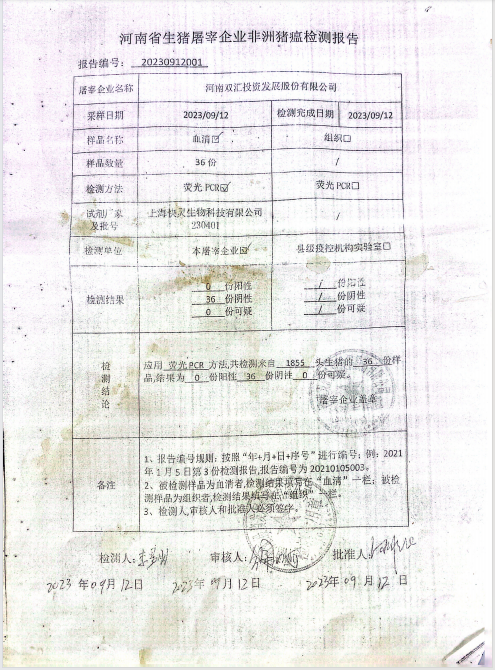 河南省生猪屠宰企业非洲猪瘟检测报告
报告编号： 20230912001
屠宰企业名称 河南双汇投资发展股份有限公司
采样日期 2023/09/12 检测完成日期 2023/09/12
样品名称 血清☑ 组织☐
样品数量 36 份 /
检测方法 荧光 PCR☑ 荧光 PCR☐
试剂厂家及批号 上海快灵生物科技有限公司 230401 /
检测单位 本屠宰企业☑ 县级疫控机构实验室☐
检测结果
0 份阳性 / 份阳性
36 份阴性 / 份阴性
0 份可疑 / 份可疑
检测结论
应用 荧光 PCR 方法,共检测来自 1855 头生猪的 36 份样
品,结果为 0 份阳性 36 份阴性 0 份可疑。
屠宰企业盖章
备注
1、报告编号规则：按照“年+月+日+序号”进行编号；例：2021
年 1 月 5 日第 3 份检测报告,报告编号为 20210105003。
2、被检测样品为血清者,检测结果填写在“血清”一栏；被检
测样品为组织者,检测结果填写在“组织”一栏。
3、检测人,审核人和批准人必须签字。
检测人: 审核人: 批准人:
2023 年 09 月 12 日 2023 年 09 月 12 日 2023 年 09 月 12 日